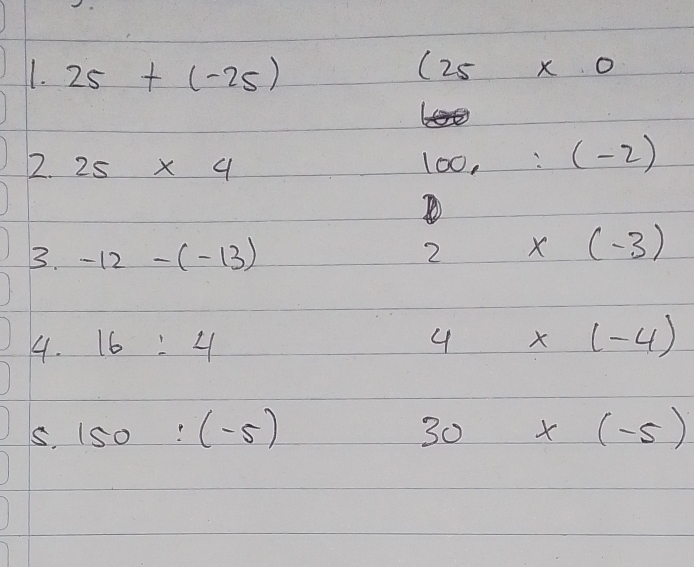 1. 25 + (-25) (25 x 0
2. 25 x 4 100, : (-2)
3. -12 -(-13) 2 x (-3)
4. 16 : 4 4 x (-4)
5. 150 : (-5) 30 x (-5)